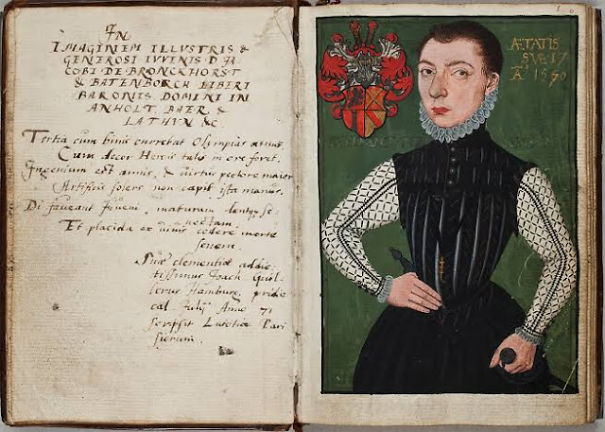 IN
IMAGINEM ILLVSTRIS &
GENEROSI IVVENIS D IA
COBI DE BRONCKHORST
& BATENBORCH LIBERI
BARONIS. DOMINI IN
ANHOLT, BAER &
LATHVN &c
Tertia cum binis currebat Olympias annis,
Cum decor Herois talis in ore foret.
Ingenium est annis, & virtus pectore maior
Artificis solers non capit ista manus.
Di faveant iuveni, maturam
nectam.
Et placida et cedere morte
senem.
Suae clementiae addic
tissimus Joach.
Hamburg. pridie
cal. Julij Anno 71
scripsit Lutetiae Pari
siorum.
ÆTATIS
SVÆ 17
Aº 1570